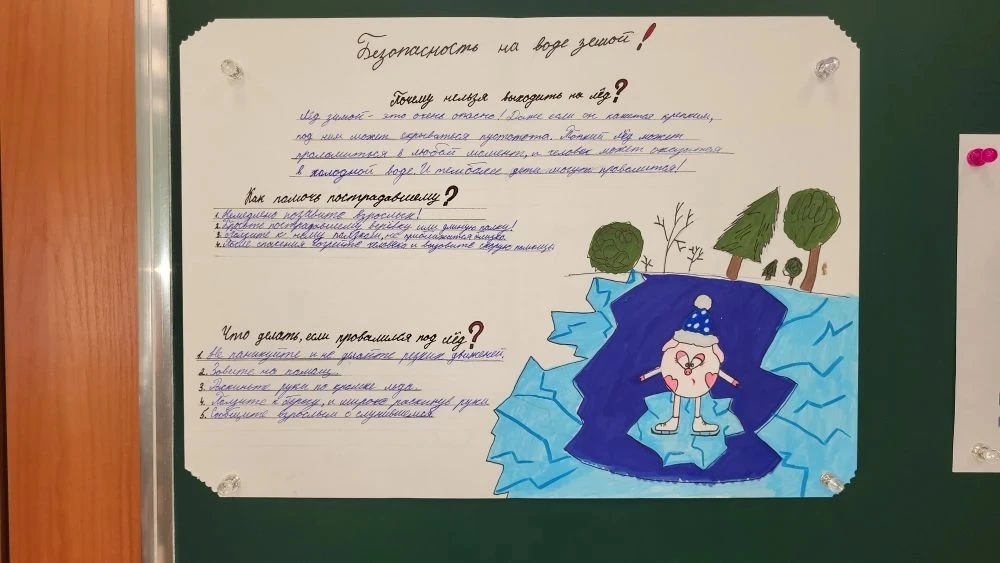 Безопасность на воде зимой!
Почему нельзя выходить на лёд?
Лёд зимой - это очень опасно! Даже если он кажется крепким,
под ним может скрываться пустотота. Тонкий лёд может
проломиться в любой момент, и человек может оказаться
в холодной воде. И тем более дети могут провалится!
Как помочь пострадавшему?
1. Немедлено позовите взрослых!
2. Бросьте пострадавшему верёвку или длиную палку!
3. Ползите к нему ползком, не приближайтся близко.
4. После спасения согрейте человека и вызовите скорую помощь.
Что делать, если провалился под лёд?
1. Не паникуйте и не делайте резких движений.
2. Зовите на помощь.
3. Раскиньте руки по кромке льда.
4. Ползите к берегу, и широко раскинув руки
5. Сообщите взрослым о случившемся